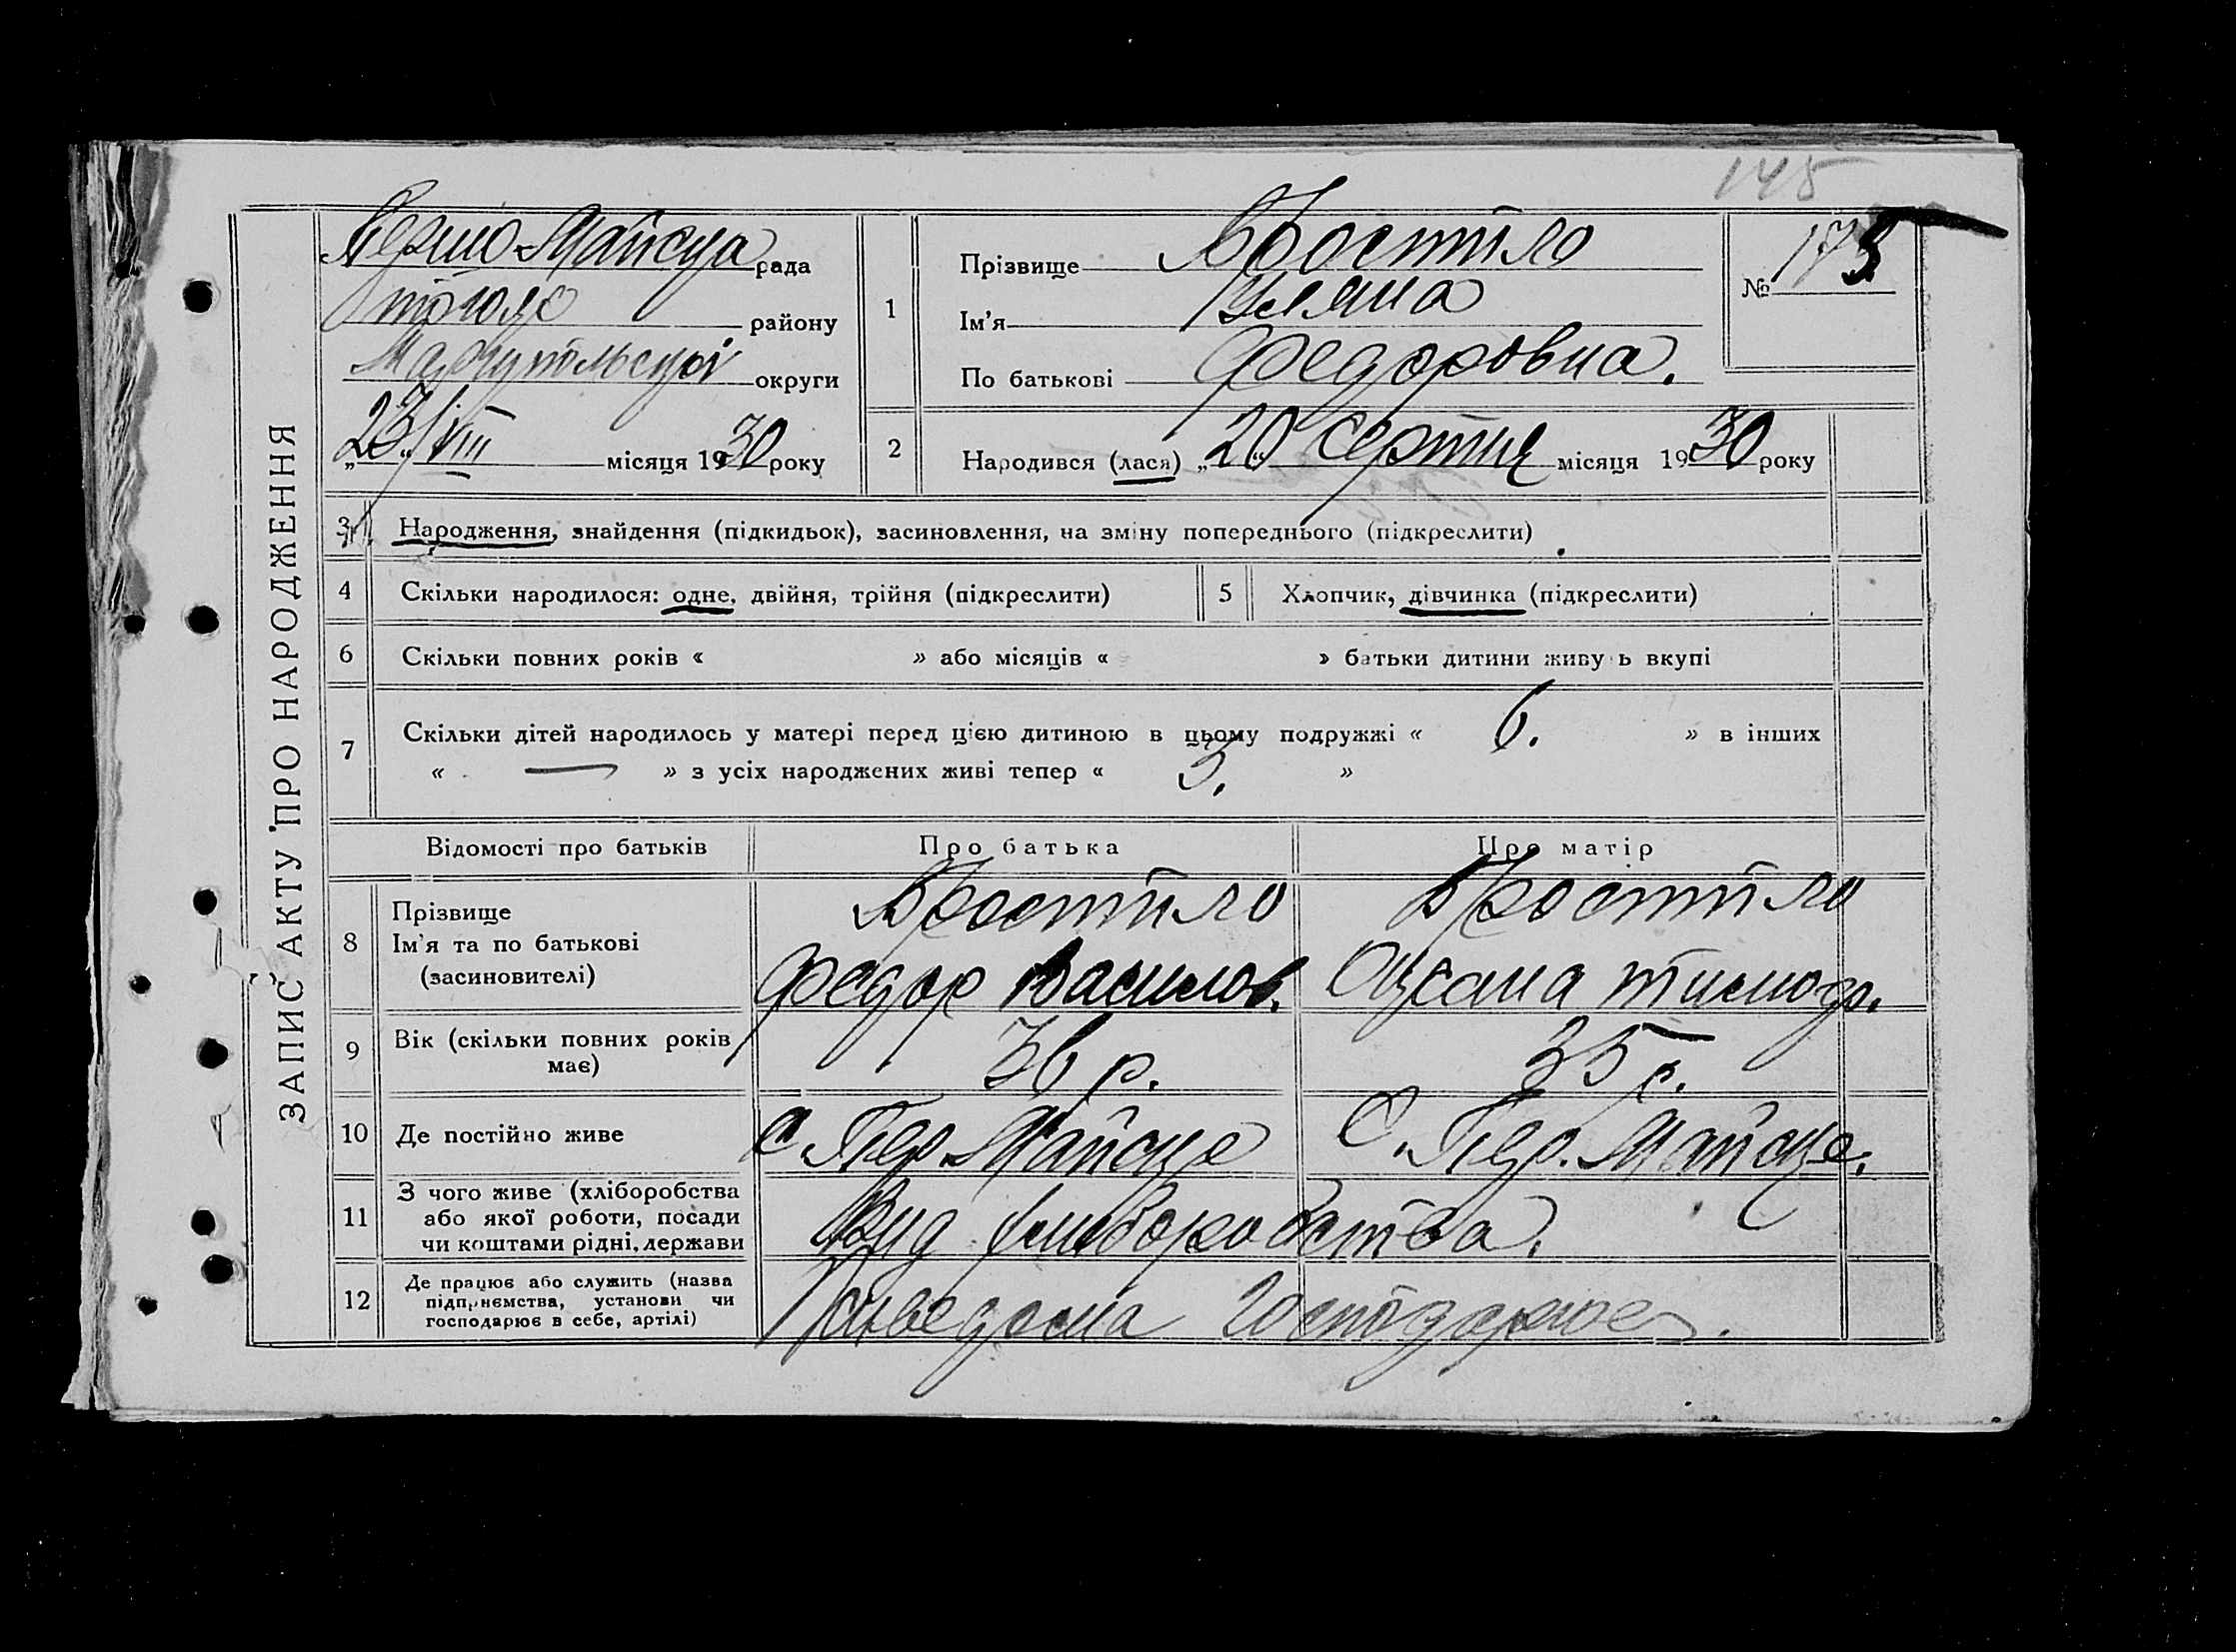 145
ЗАПИС АКТУ ПРО НАРОДЖЕННЯ
Первo Майська рада
тогож району
Маріупольської округи
„23/VIII місяця 1930 року
1
Прізвище Простіло
Ім'я Уляна
По батькові Федоровна.
№ 173
2
Народився (лася) „20" серпня місяця 1930 року
3 Народження, знайдення (підкидьок), засиновлення, на зміну попереднього (підкреслити)
4 Скільки народилося: одне, двійня, трійня (підкреслити)
5 Хлопчик, дівчинка (підкреслити)
6 Скільки повних років « » або місяців « » батьки дитини живуть вкупі
7 Скільки дітей народилось у матері перед цією дитиною в цьому подружжі « 6. » в інших
« — » з усіх народжених живі тепер « 3. »
Відомості про батьків Про батька Про матір
8 Прізвище
Ім'я та по батькові
(засиновителі)
Простіло
Федор Василов.
Простіло
Оксана Тимофр.
9 Вік (скільки повних років має)
36 р.
35 р.
10 Де постійно живе
с. Пер. Майське
С. Пер. Майське.
11 З чого живе (хліборобства
або якої роботи, посади
чи коштами рідні, держави
Від хліборобства.
12 Де працює або служить (назва
підприємства, установи чи
господарює в себе, артілі)
господарює.